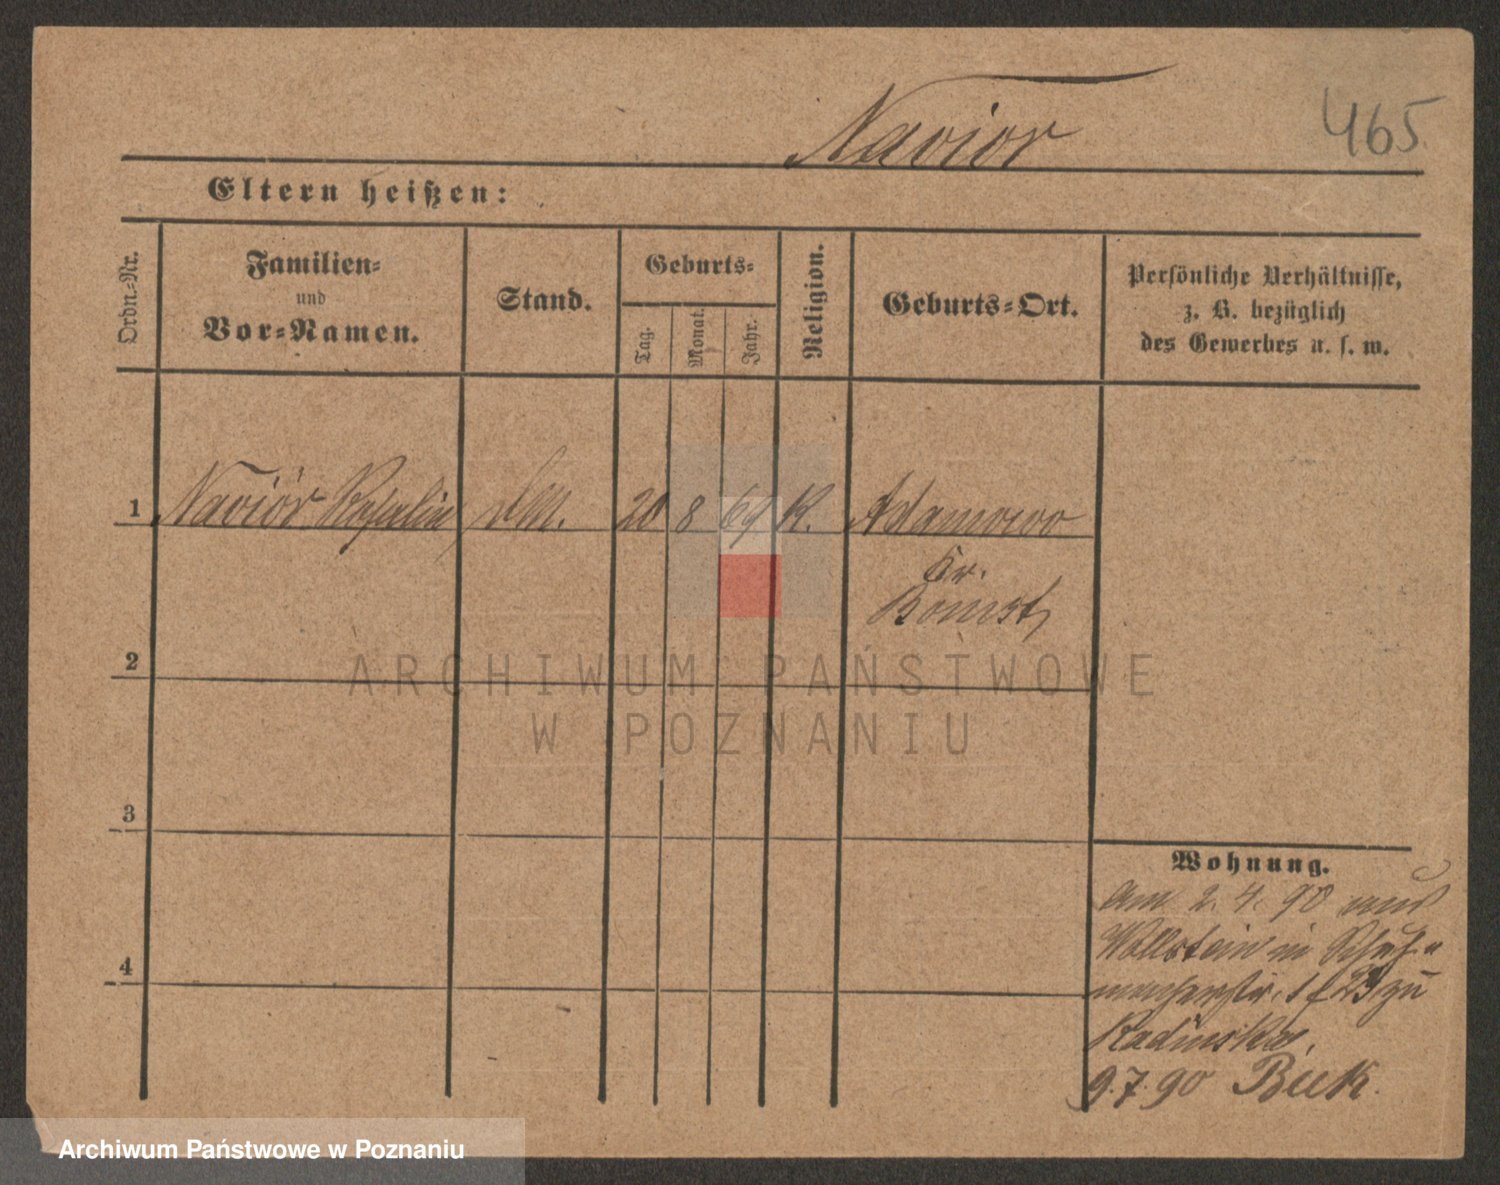 Navior
465.
Eltern heißen:
Ordn.-Nr.
Familien- und Vor-Namen.
Stand.
Geburts-
Tag.
Monat.
Jahr.
Religion.
Geburts-Ort.
Persönliche Verhältnisse,
z. B. bezüglich
des Gewerbes u. s. w.
1 Navior Rosalie 20 8 69 K. Adamowo
Kr.
Bomst
2
3
4
Wohnung.
am 2. 4. 90 aus
Wollstein in Schuh-
macherstr. zu
Radinska.
9.7.90 Buk.
ARCHIWUM PAŃSTWOWE
W POZNANIU
Archiwum Państwowe w Poznaniu